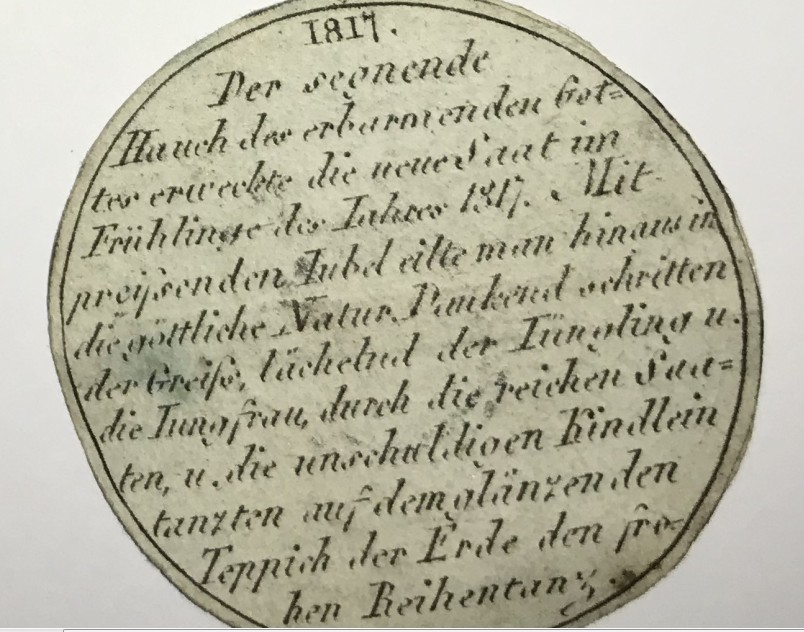 1817.
Der segnende
Hauch des erbarmenden Got=
tes erweckte die neue Saat im
Frühlinge des Iahres 1817. Mit
preißenden Iubel eilte man hinaus in
die göttliche Natur. Dankend schritten
der Greiß, lächelnd der Iüngling u.
die Iungfrau, durch die reichen Saa=
ten, u. die unschuldigen Kindlein
tanzten auf dem glänzenden
Teppich der Erde den fro=
hen Reihentanz.